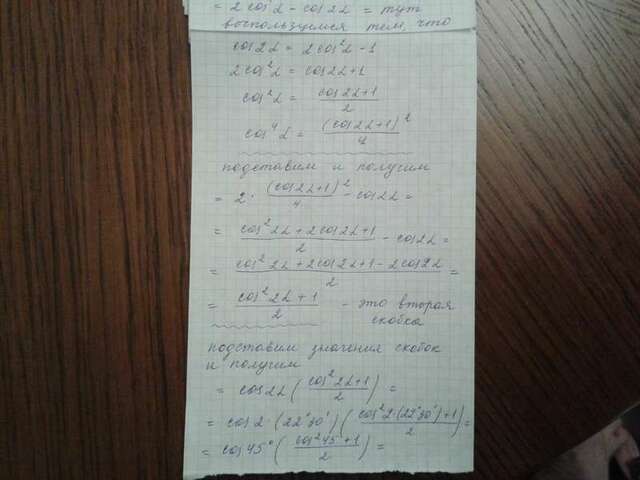 = 2 cos⁴α - cos2α = тут
воспользуемся тем, что
cos2α = 2cos²α - 1
2cos²α = cos2α+1
cos²α = (cos2α+1)/2
cos⁴α = (cos2α+1)²/4
подставим и получим
= 2 · (cos2α+1)²/4 - cos2α =
= (cos²2α + 2cos2α+1)/2 - cos2α =
= (cos²2α + 2cos2α+1 - 2cos2α)/2 =
= (cos²2α + 1)/2 - это вторая
скобка
подставим значения скобок
и получим
= cos2α ((cos²2α+1)/2) =
= cos2·(22°30') ((cos²2·(22°30')+1)/2) =
= cos45° ((cos²45°+1)/2) =